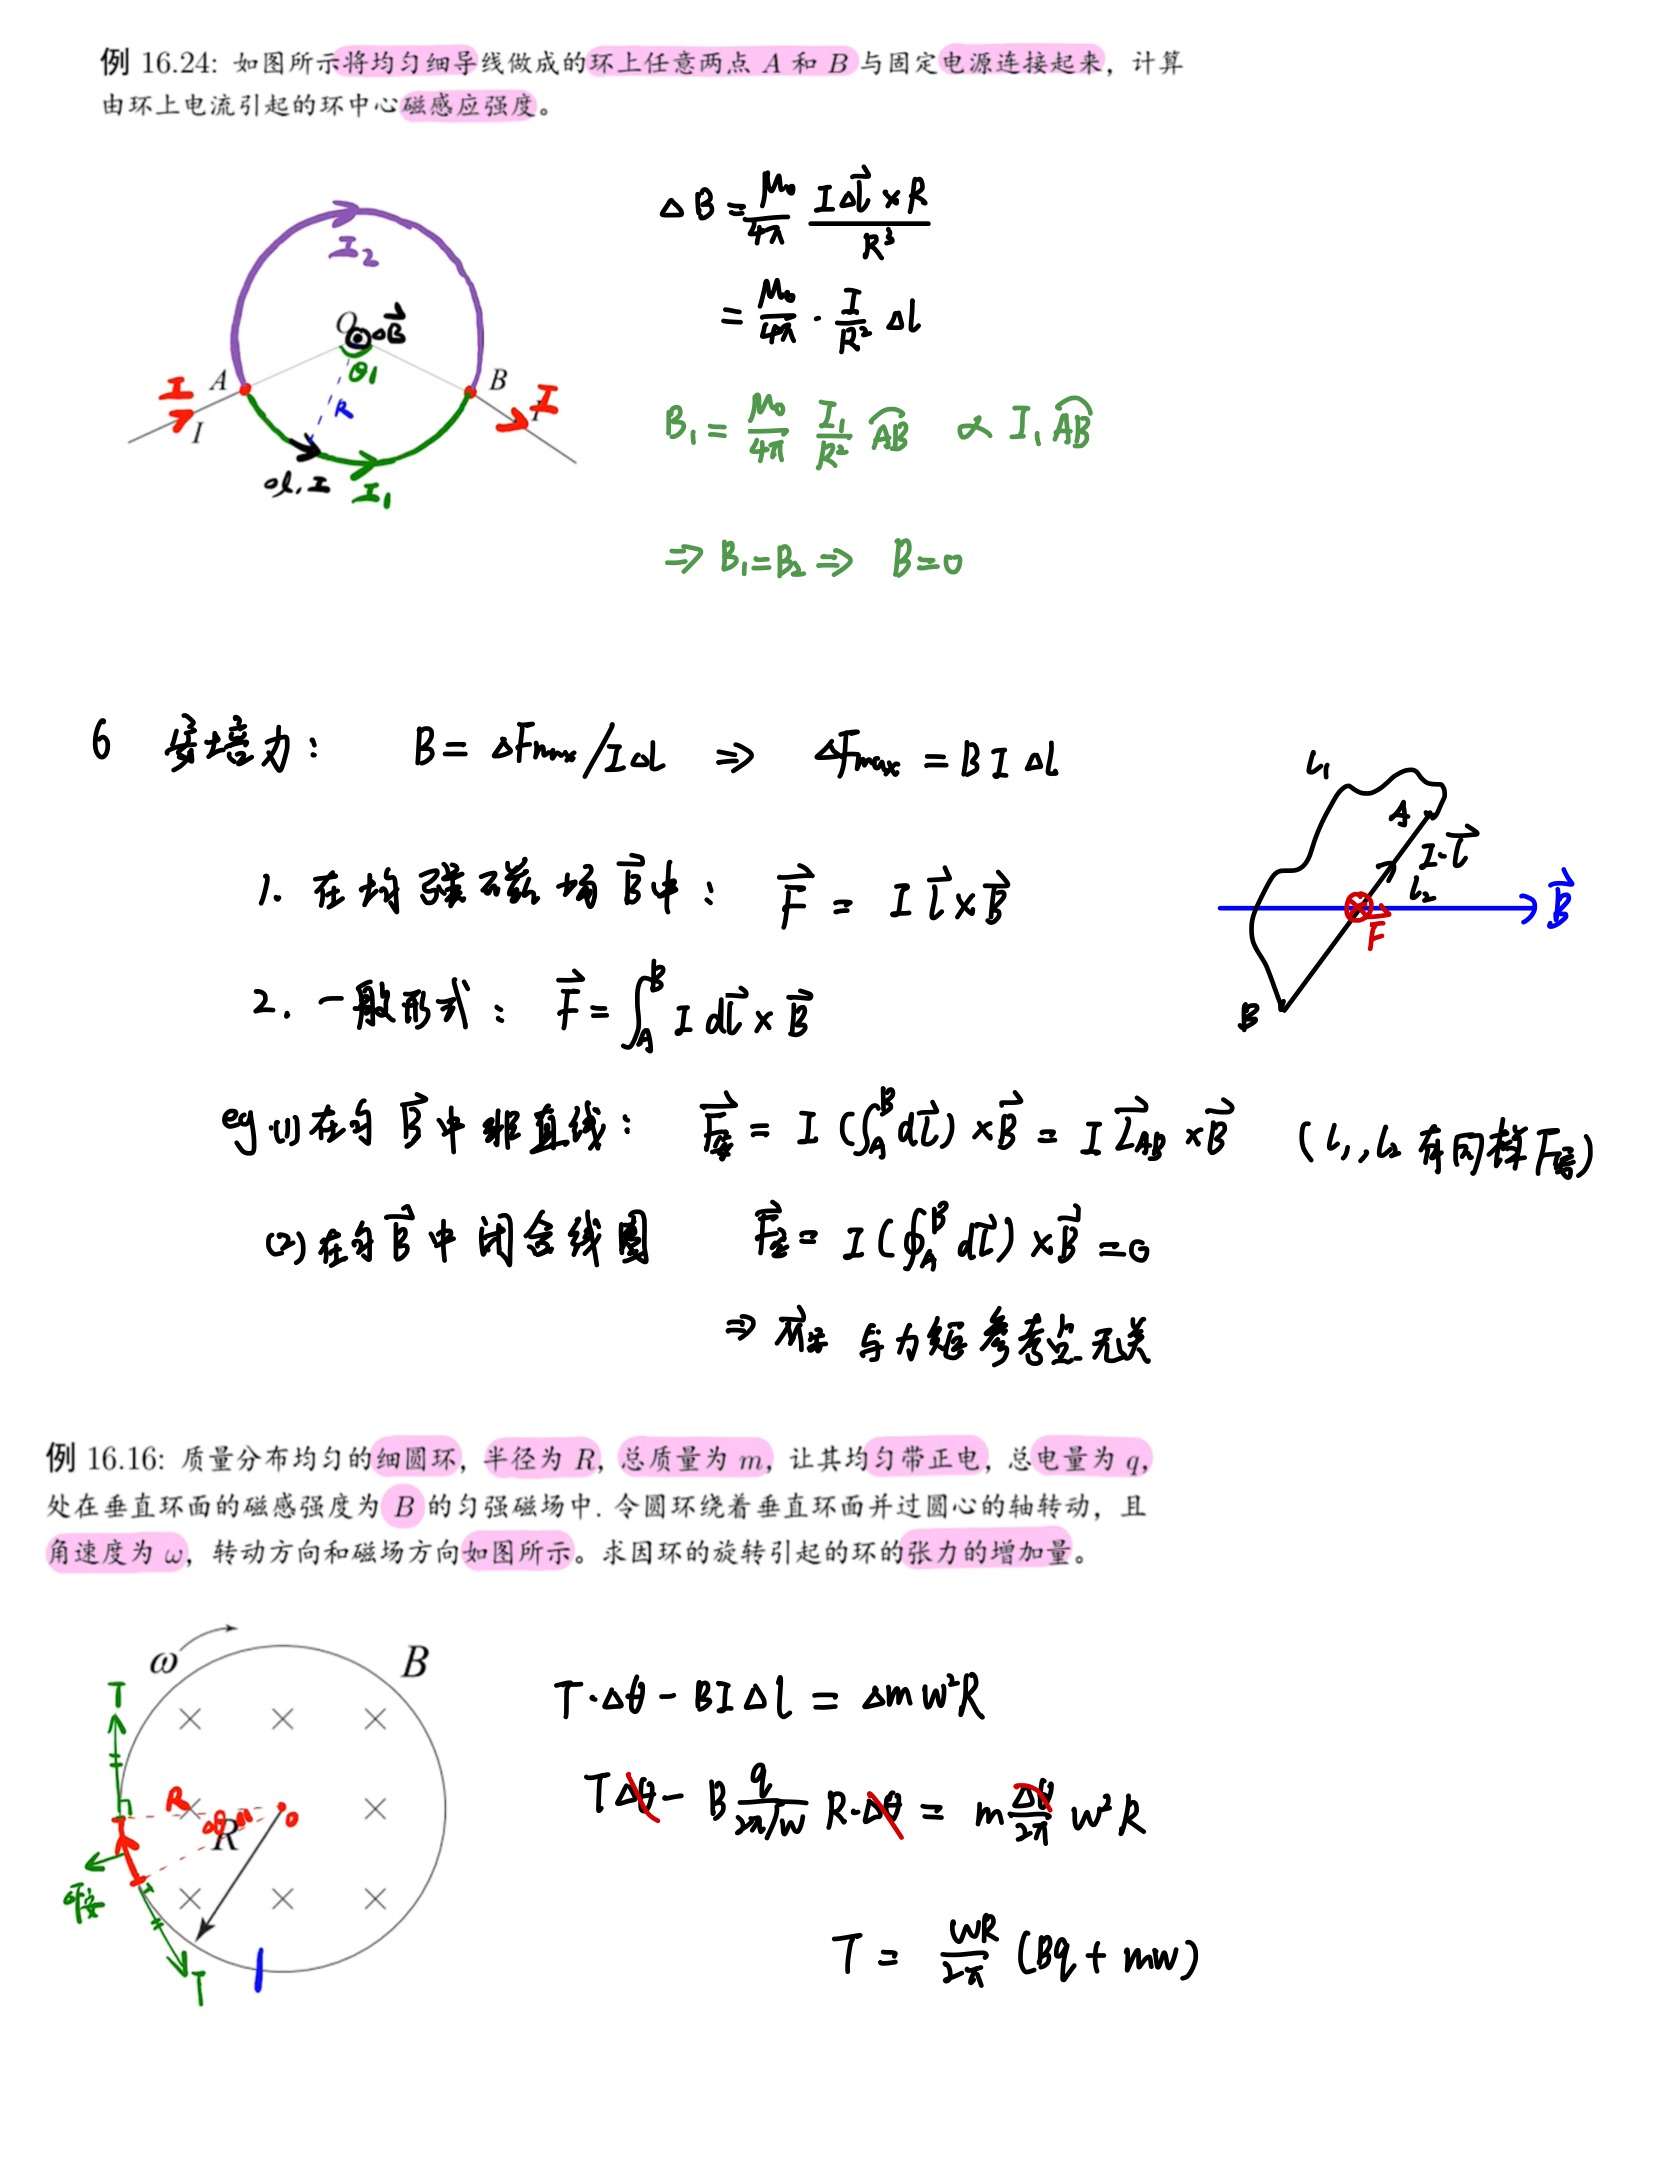 例 16.24: 如图所示将均匀细导线做成的环上任意两点 A 和 B 与固定电源连接起来，计算
由环上电流引起的环中心磁感应强度。
ΔB = μ₀/4π · IΔl⃗ × R / R³
= μ₀/4π · I/R² Δl
I₂
O
ΔB⃗
θ₁
A
B
I
I
I
R
Δl, I
I₁
B₁ = μ₀/4π I₁/R² AB⌢ ∝ I₁ AB⌢
⇒ B₁=B₂ ⇒ B=0
6 安培力： B = ΔFmax/IΔL ⇒ ΔFmax = B I Δl
L₁
A
I·l⃗
L₂
B⃗
F⃗
B
1. 在均强磁场 B⃗ 中： F⃗ = I l⃗ × B⃗
2. 一般形式： F⃗ = ∫_A^B I dl⃗ × B⃗
eg (1) 在匀 B⃗ 中非直线： F⃗安 = I (∫_A^B dl⃗) × B⃗ = I L⃗_AB × B⃗ (L₁, L₂ 有同样 F安)
(2) 在匀 B⃗ 中闭合线圈 F⃗安 = I (∮_A^B dl⃗) × B⃗ = 0
⇒ M⃗安 与力矩参考点无关
例 16.16: 质量分布均匀的细圆环，半径为 R，总质量为 m，让其均匀带正电，总电量为 q，
处在垂直环面的磁感强度为 B 的匀强磁场中. 令圆环绕着垂直环面并过圆心的轴转动，且
角速度为 ω，转动方向和磁场方向如图所示。求因环的旋转引起的环的张力的增加量。
ω
B
T
R
Δθ
O
R
F安
T
T·Δθ − BIΔl = Δm w²R
TΔθ − B q/(2π/w) R·Δθ = m Δθ/2π w²R
T = wR/2π (Bq + mw)